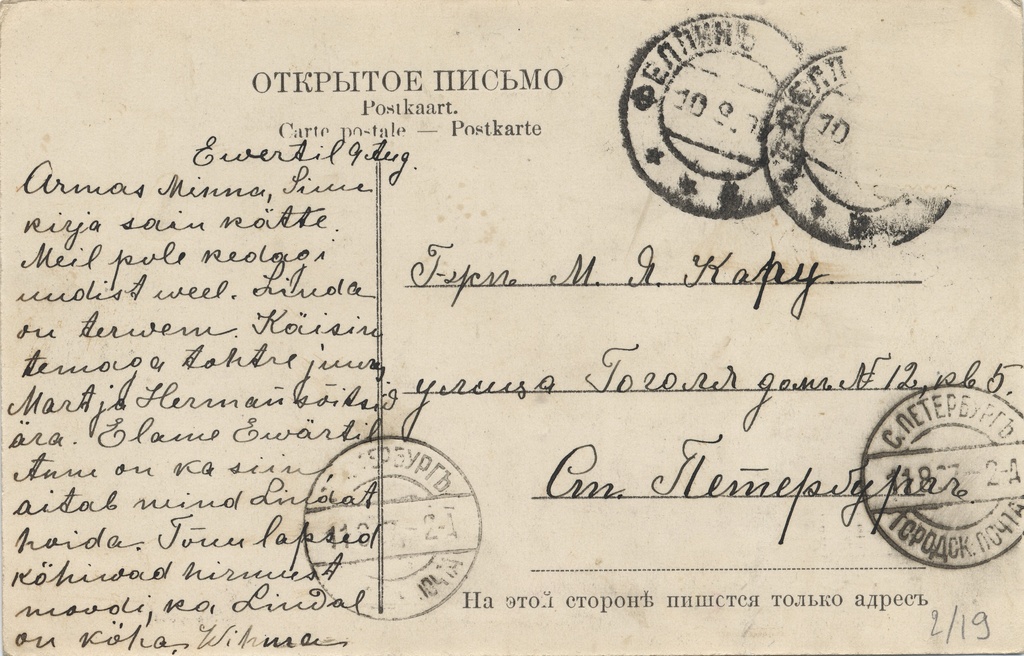 ОТКРЫТОЕ ПИСЬМО
Postkaart.
Carte postale — Postkarte
Ewertil 9 Aug.
Armas Minna, Sinu
kirja sain kätte.
Meil pole kedagi
uudist weel. Linda
on terwem. Käisin
temaga tohtre juures
Mart ja Herman sõitsid
ära. Elame Ewärtil
Anne on ka siin
aitab mind Lindat
hoida. Tõnu lapsed
köhiwad hirmust
moodi, ka Lindal
on köha. Wilma
Г-жѣ М. Я. Кару.
улица Гоголя домъ № 12, кв 5.
Ст. Петербургъ
На этой сторонѣ пишется только адресъ
2/19
ФЕЛЛИНЪ
10 8
ФЕЛЛ
10
С.ПЕТЕРБУРГЪ
11.8.07-2-Д
ГОРОДСК.ПОЧТА
ПЕТЕРБУРГЪ